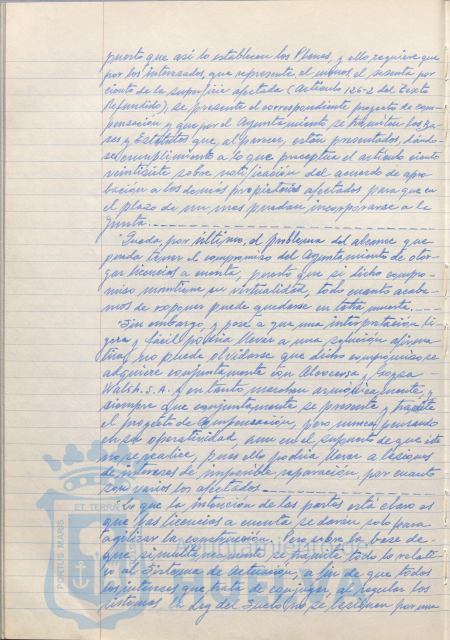 puesto que así lo establecen los Planes, y ello requiere que
por los interesados, que represente, al menos, el sesenta por
ciento de la superficie afectada (Artículo 126-2 del Texto
Refundido), se presente el correspondiente proyecto de com-
pensación y que por el Ayuntamiento se tramiten las Ba-
ses y Estatutos que, al parecer, están presentados, dándo-
se cumplimiento a lo que preceptua el artículo ciento
veintisiete sobre notificación del acuerdo de apro-
bación a los demás propietarios afectados para que en
el plazo de un mes puedan incorporarse a la
Junta.
Queda, por último, el problema del alcance que
pueda tener el compromiso del Ayuntamiento de otor-
gar licencias a cuenta, puesto que si dicho compro-
miso mantiene su virtualidad, todo cuanto acaba-
mos de exponer puede quedarse en letra muerta.
Sin embargo, y pese a que una interpretación li-
gera y fácil podría llevar a una solución afirma-
tiva, no puede olvidarse que dicho compromiso, se
adquiere conjuntamente con
Walsh. S.A. y en tanto marchen armónicamente y
siempre que conjuntamente se presente y tramite
el proyecto de Compensación, pero nunca pensando
en su operatividad, aun en el supuesto de que esto
no se realice, pues ello podría llevar a lesiones
de intereses de imposible reparación, por cuanto
son varios los afectados.
Lo que la intención de las partes está claro es
que las licencias a cuenta se darán solo para
agilizar la construcción. Pero sobre la base de
que simultáneamente se tramite todo lo relati-
vo al Sistema de Actuación, a fin de que todos
los intereses que trata de conjugar, al regular los
sistemas la Ley del Suelo, no se lesionen por una
ET TERRA
PORTUS MARIS